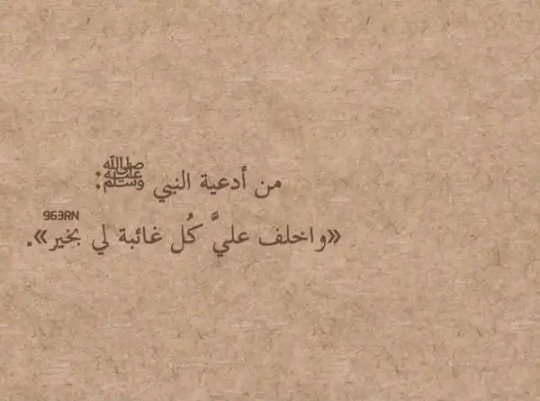 من أدعية النبي ﷺ:
963RN
«واخلف عليَّ كُل غائبة لي بخير».